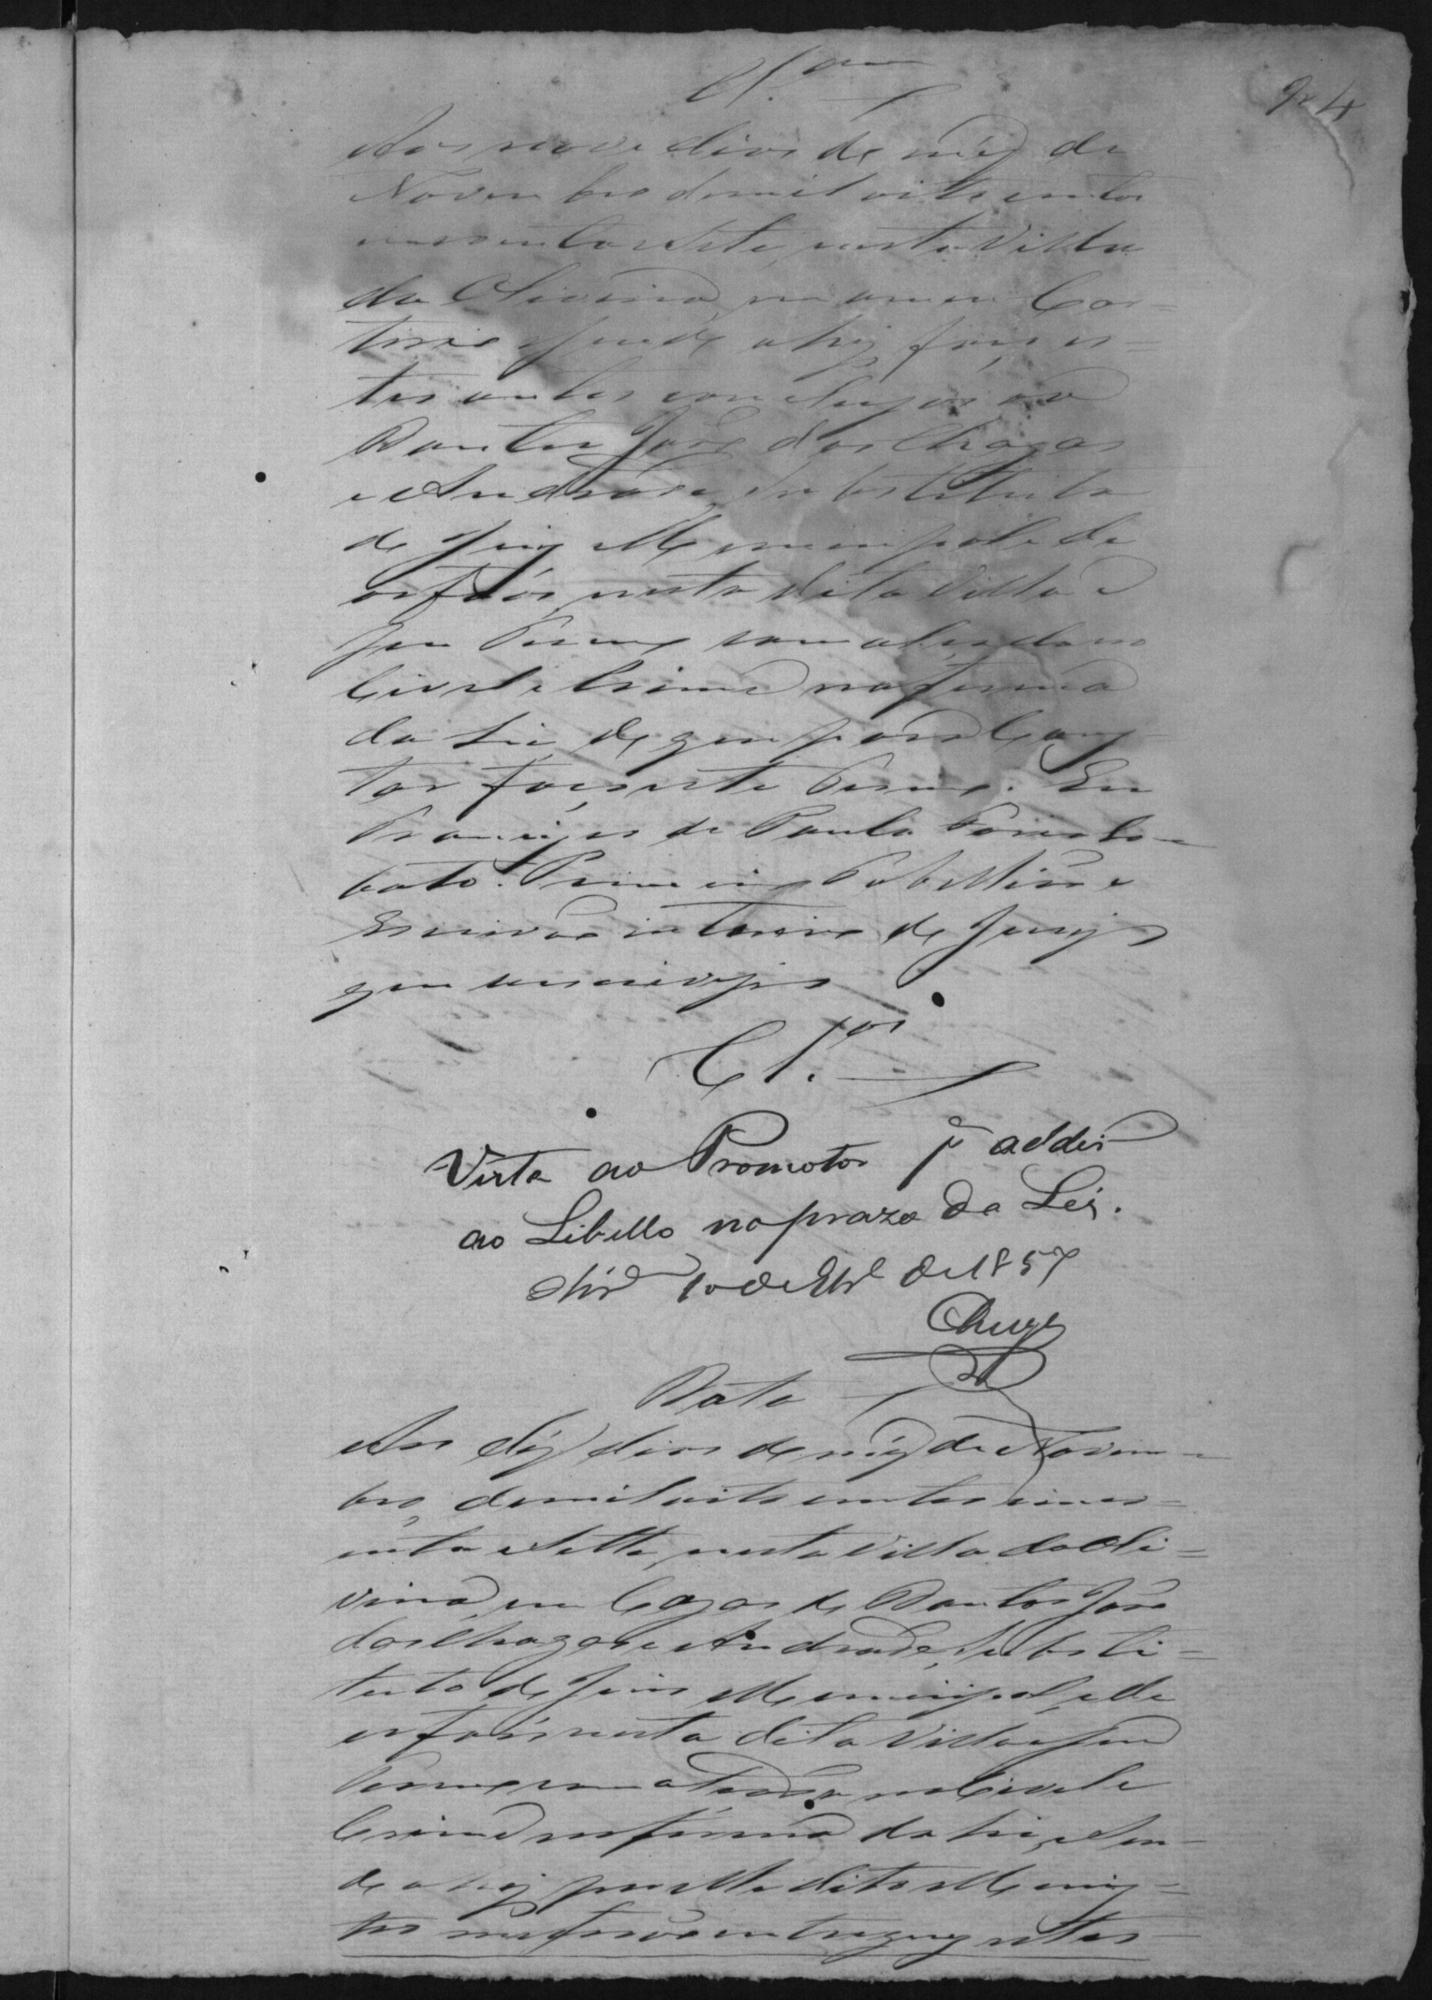 Cl.am
94
Aos nove dias do mez de
Novembro de mil oito centos
cincoenta e sete, nesta Villa
da Oliveira, em o meu Car=
torio sendo ahi, faço es=
tes autos conclusos ao
Doutor José das Chagas
e Andrade, substituto
de Juiz Municipal e de
orfãos, nesta dita Villa e
seu Termo com alçada no
Civel e Crime na forma
da Lei, de que para cons
tar faço este Termo. Eu
Francisco de Paula
bato. Primeiro Tabellião e
Escrivão interino do Jury
que escrevi
Cl.os
Vista ao Promotor pa addir
ao Libello no prazo da Lei.
Olivra 10 de 9br.o de 1857
Chags
Data
Aos déz dias do mez de Novem=
bro, de mil oito centos cinco=
enta e sette, nesta Villa da Oli=
veira, em Cazas do Doutor José
das Chagas e Andrade, substi=
tuto do Juis Municipal, e de
orfãos nesta dita Villa e seu
Termo com alçada no Civel e
Crime na forma da Lei, sen=
do ahi, por elle dito Menis=
tro me forão entregues estes